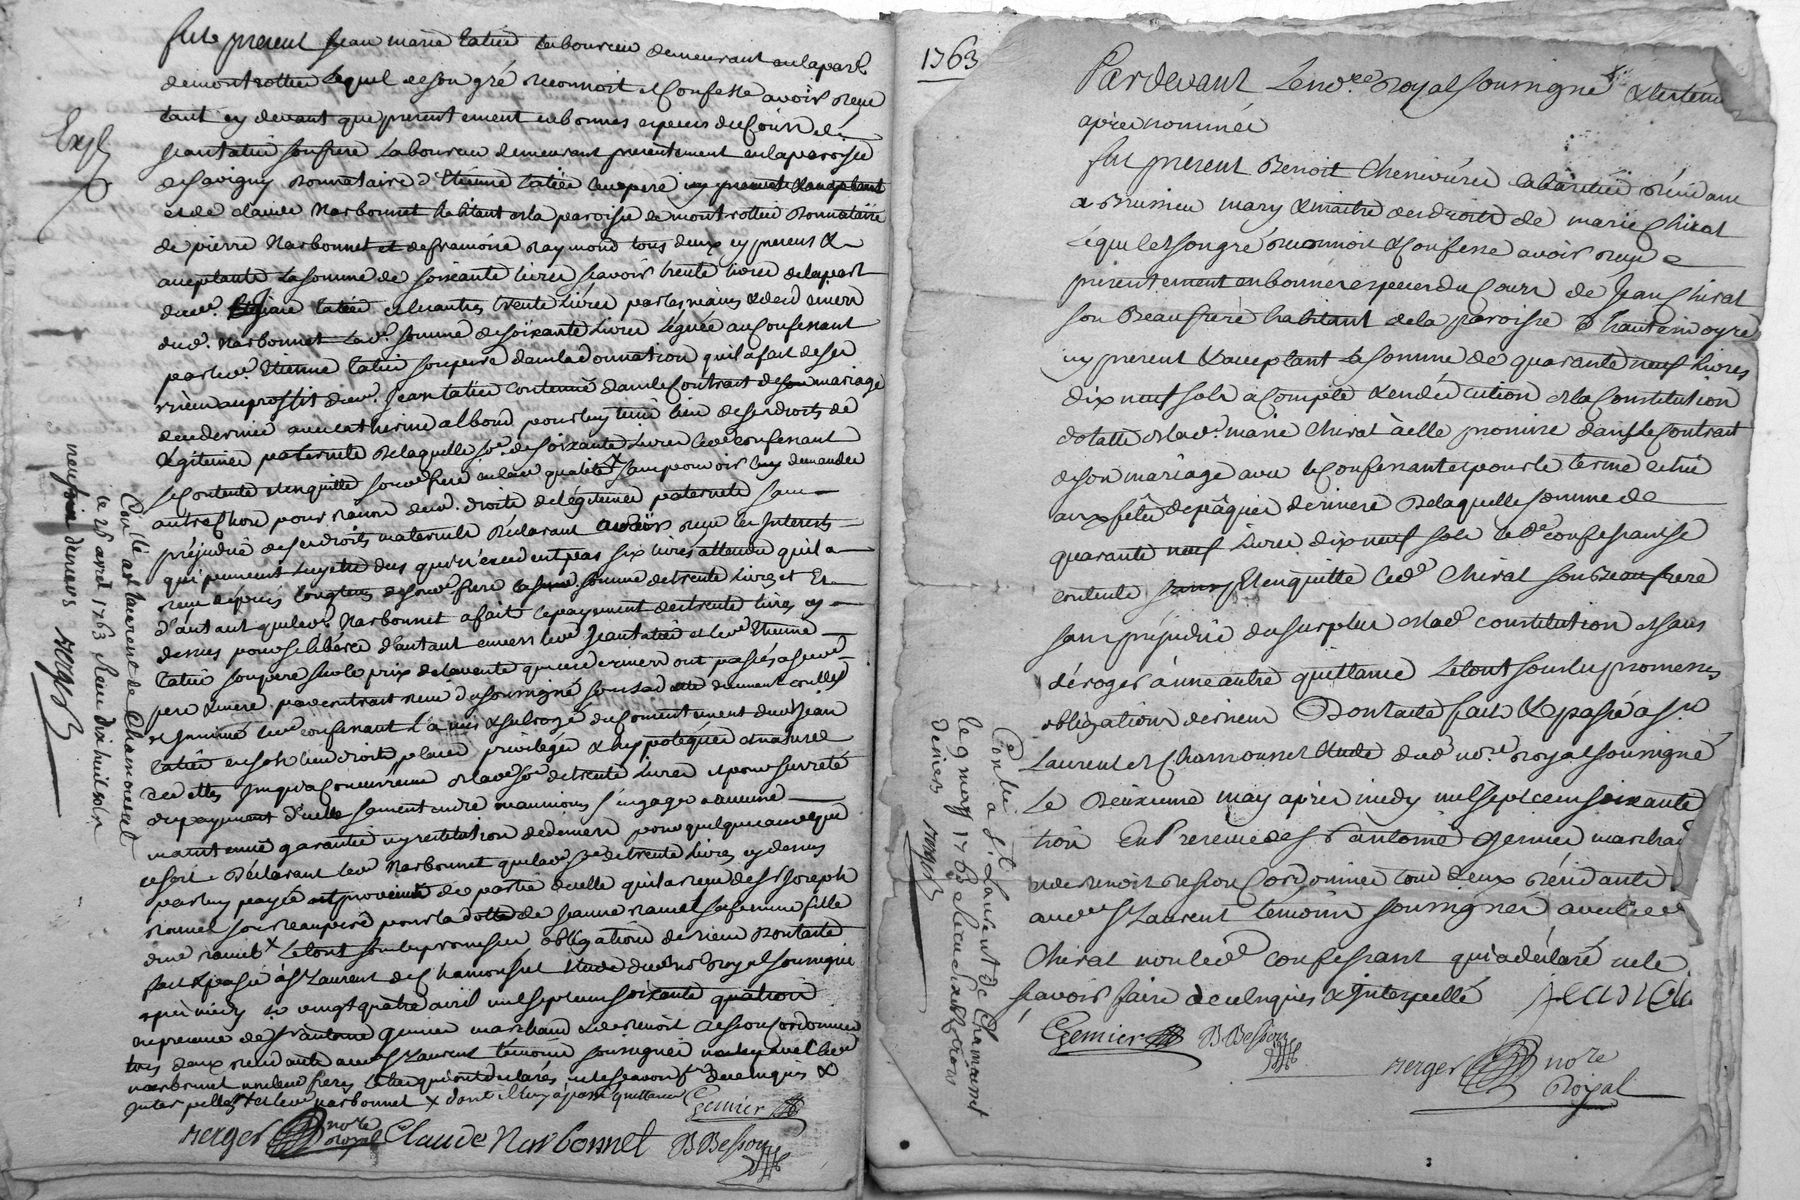 fut present Jean marie Tatiée laboureur demeurant en la paroisse
de montrottier lequel de son gré reconnoit & Confesse avoir reçu
tant cy devant que presentement en bonnes especes du Cours de
Jean tatiée son frere Laboureur demeurant presentement en la paroisse
de Savigny Donnataire d'Etienne tatiée leur pere
et de claude Narbonnet habitant de la paroisse de montrottier Donnataire
de pierre Narbonnet et de françoise Raymond tous deux cy presens &
acceptants La somme de soixante livres sçavoir trente livres de la part
dud. Jean tatiée et les autres trente Livres par les mains & deniers
dud. Narbonnet La de. somme de soixante Livres Léguée au Confessant
par led. Etienne tatiée son pere dans la donnation qu'il a fait de ses
biens au proffit dud. Jean tatiée contenue dans le Contrat de son mariage
avec catherine albout pour luy tenir lieu de ses droits de
légitime paternelle De laquelle se. de soixante Livres led. confessant
se Contente et en quitte son de. frere en lad. qualité x sans pouvoir luy demander
autre Chose pour raison desd. droits de légitime paternelle sans
préjudice de ses droits maternels Déclarant avoir reçu les Interests
qui n'excedent pas six livres attendu qu'il a
reçu depuis longtems de son de. frere somme de trente Livres et
d'autant que led. Narbonnet a fait le payement des trente livres cy
dessus pour se libérer d'autant envers led. Jean tatiée et led. Etienne
tatiée son pere sur le prix de la vente que ces derniers ont passée a sesd.
pere & mere par contrat reçu du soussigné
led. confessant L'a mis & subrogé du Consentement dud. Jean
tatiée en son lieu droits places privileges & hypoteques
jusqu'a Concurrence de lad. se. de trente Livres et pour sureté
du payement d'icelle sans entendre neanmoins s'engager a aucune
maintenue garantie ny restitution de deniers pour quelque cause que
ce soit. Déclarant led. Narbonnet que lad. se. de trente Livres cy dessus
par luy payée est provenue de partie de celle qu'il a reçu de Sr Joseph
Ramel son beaupere pour la dotte de Jeanne Ramel sa femme fille
dud. ramel x Le tout sous les promesses obligations de rien Dont acte
fait & passé à St Laurent de Chamousset Etude dud. no. Royal soussigné
après midy le vingt quatre avril mil sept cent soixante & trois
en presence de Sr antoine Gemier marchand & de Benoit Besson Cordonnier
tous deux residants aud. St Laurent témoins soussignés
narbonnet non lesd. freres tatiée qui ont declarés ne le sçavoir fe. de ce enquis &
Interpellés narbonnet x dont il luy a passé quittance Gemier
Berger nore Royal Claude Narbonnet B Besson
Exp
Con.lé a St Laurent de Chamousset
le 28 avril 1763 Reçu dix huit sols
neuf deniers Berger
1763
Pardevant Le no.re Royal soussigné & les témoins
après nommés
fut present Benoit Chenivierer Cabaretier résidant
a Brussieu mary & maitre des droits de marie Chirat
lequel de son gré reconnoit & Confesse avoir reçu
présentement en bonnes especes du Cours de Jean Chirat
son Beaufrere habitant de la paroisse d'hauterivoyre
cy present & acceptant La somme de quarante neuf livres
dix neuf sols a Compte & en déduction de la Constitution
dotalle de lad. marie Chirat à elle promise dans le Contrat
de son mariage avec le Confessant et pour le terme échu
aux fêtes de pâques dernieres De laquelle somme de
quarante neuf Livres dix neuf sols led. confessant se
contente & en quitte led. Chirat son Beaufrere
sans préjudice du surplus de lad. constitution et sans
déroger à une autre quittance Le tout sous les promesses
obligations de rien Dont acte fait & passé a St
Laurent de Chamousset Etude dud. no.re Royal soussigné
Le Deuxieme may après midy mil sept cent soixante
trois En Presence de Sr antoine Gemier marchand
& de Benoit Besson Cordonnier tous deux résidants
aud. St Laurent témoins soussignés avec led.
Chirat non led. confessant qui a déclaré ne le
sçavoir faire de ce enquis & Interpellé Jean Chi
Gemier B Besson
Berger nore
Royal
Con.lé a St Laurent de Chamousset
le 9 may 1763 Reçu
deniers Berger